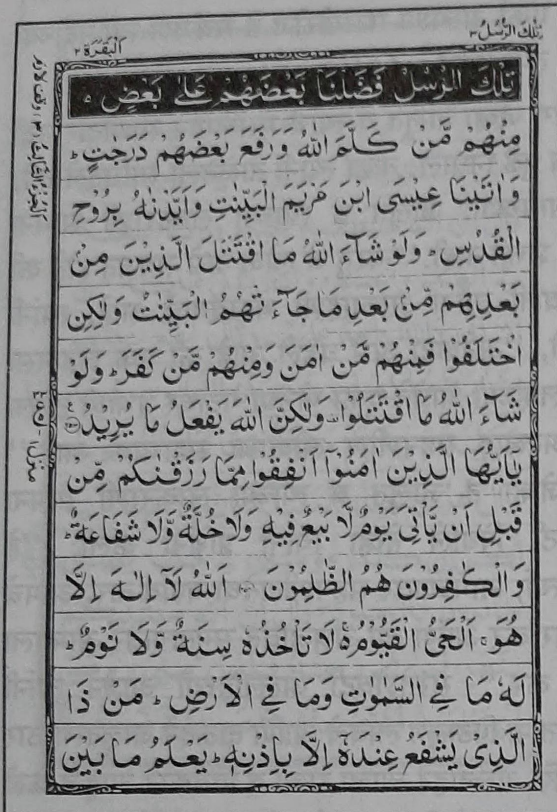 تِلْكَ الرُّسُلُ ٣
اَلْبَقَرَة ٢
تِلْكَ الرُّسُلُ فَضَّلْنَا بَعْضَهُمْ عَلٰى بَعْضٍ ۘ
مِنْهُمْ مَّنْ كَلَّمَ اللّٰهُ وَرَفَعَ بَعْضَهُمْ دَرَجٰتٍ ؕ
وَاٰتَيْنَا عِيْسَى ابْنَ مَرْيَمَ الْبَيِّنٰتِ وَاَيَّدْنٰهُ بِرُوْحِ
الْقُدُسِ ؕ وَلَوْ شَآءَ اللّٰهُ مَا اقْتَتَلَ الَّذِيْنَ مِنْ
بَعْدِهِمْ مِّنْۢ بَعْدِ مَا جَآءَ تْهُمُ الْبَيِّنٰتُ وَلٰكِنِ
اخْتَلَفُوْا فَمِنْهُمْ مَّنْ اٰمَنَ وَمِنْهُمْ مَّنْ كَفَرَ ؕ وَلَوْ
شَآءَ اللّٰهُ مَا اقْتَتَلُوْا وَلٰكِنَّ اللّٰهَ يَفْعَلُ مَا يُرِيْدُ
يٰۤاَيُّهَا الَّذِيْنَ اٰمَنُوْۤا اَنْفِقُوْا مِمَّا رَزَقْنٰكُمْ مِّنْ
قَبْلِ اَنْ يَّاْتِيَ يَوْمٌ لَّا بَيْعٌ فِيْهِ وَلَا خُلَّةٌ وَّلَا شَفَاعَةٌ ؕ
وَالْكٰفِرُوْنَ هُمُ الظّٰلِمُوْنَ اَللّٰهُ لَاۤ اِلٰهَ اِلَّا
هُوَ ۚ اَلْحَيُّ الْقَيُّوْمُ ۚ لَا تَاْخُذُهٗ سِنَةٌ وَّلَا نَوْمٌ ؕ
لَهٗ مَا فِي السَّمٰوٰتِ وَمَا فِي الْاَرْضِ ؕ مَنْ ذَا
الَّذِيْ يَشْفَعُ عِنْدَهٗۤ اِلَّا بِاِذْنِهٖ ؕ يَعْلَمُ مَا بَيْنَ
اَلْجُزْءُ الثَّالِثُ (٣) وقف لازم
منزل ١